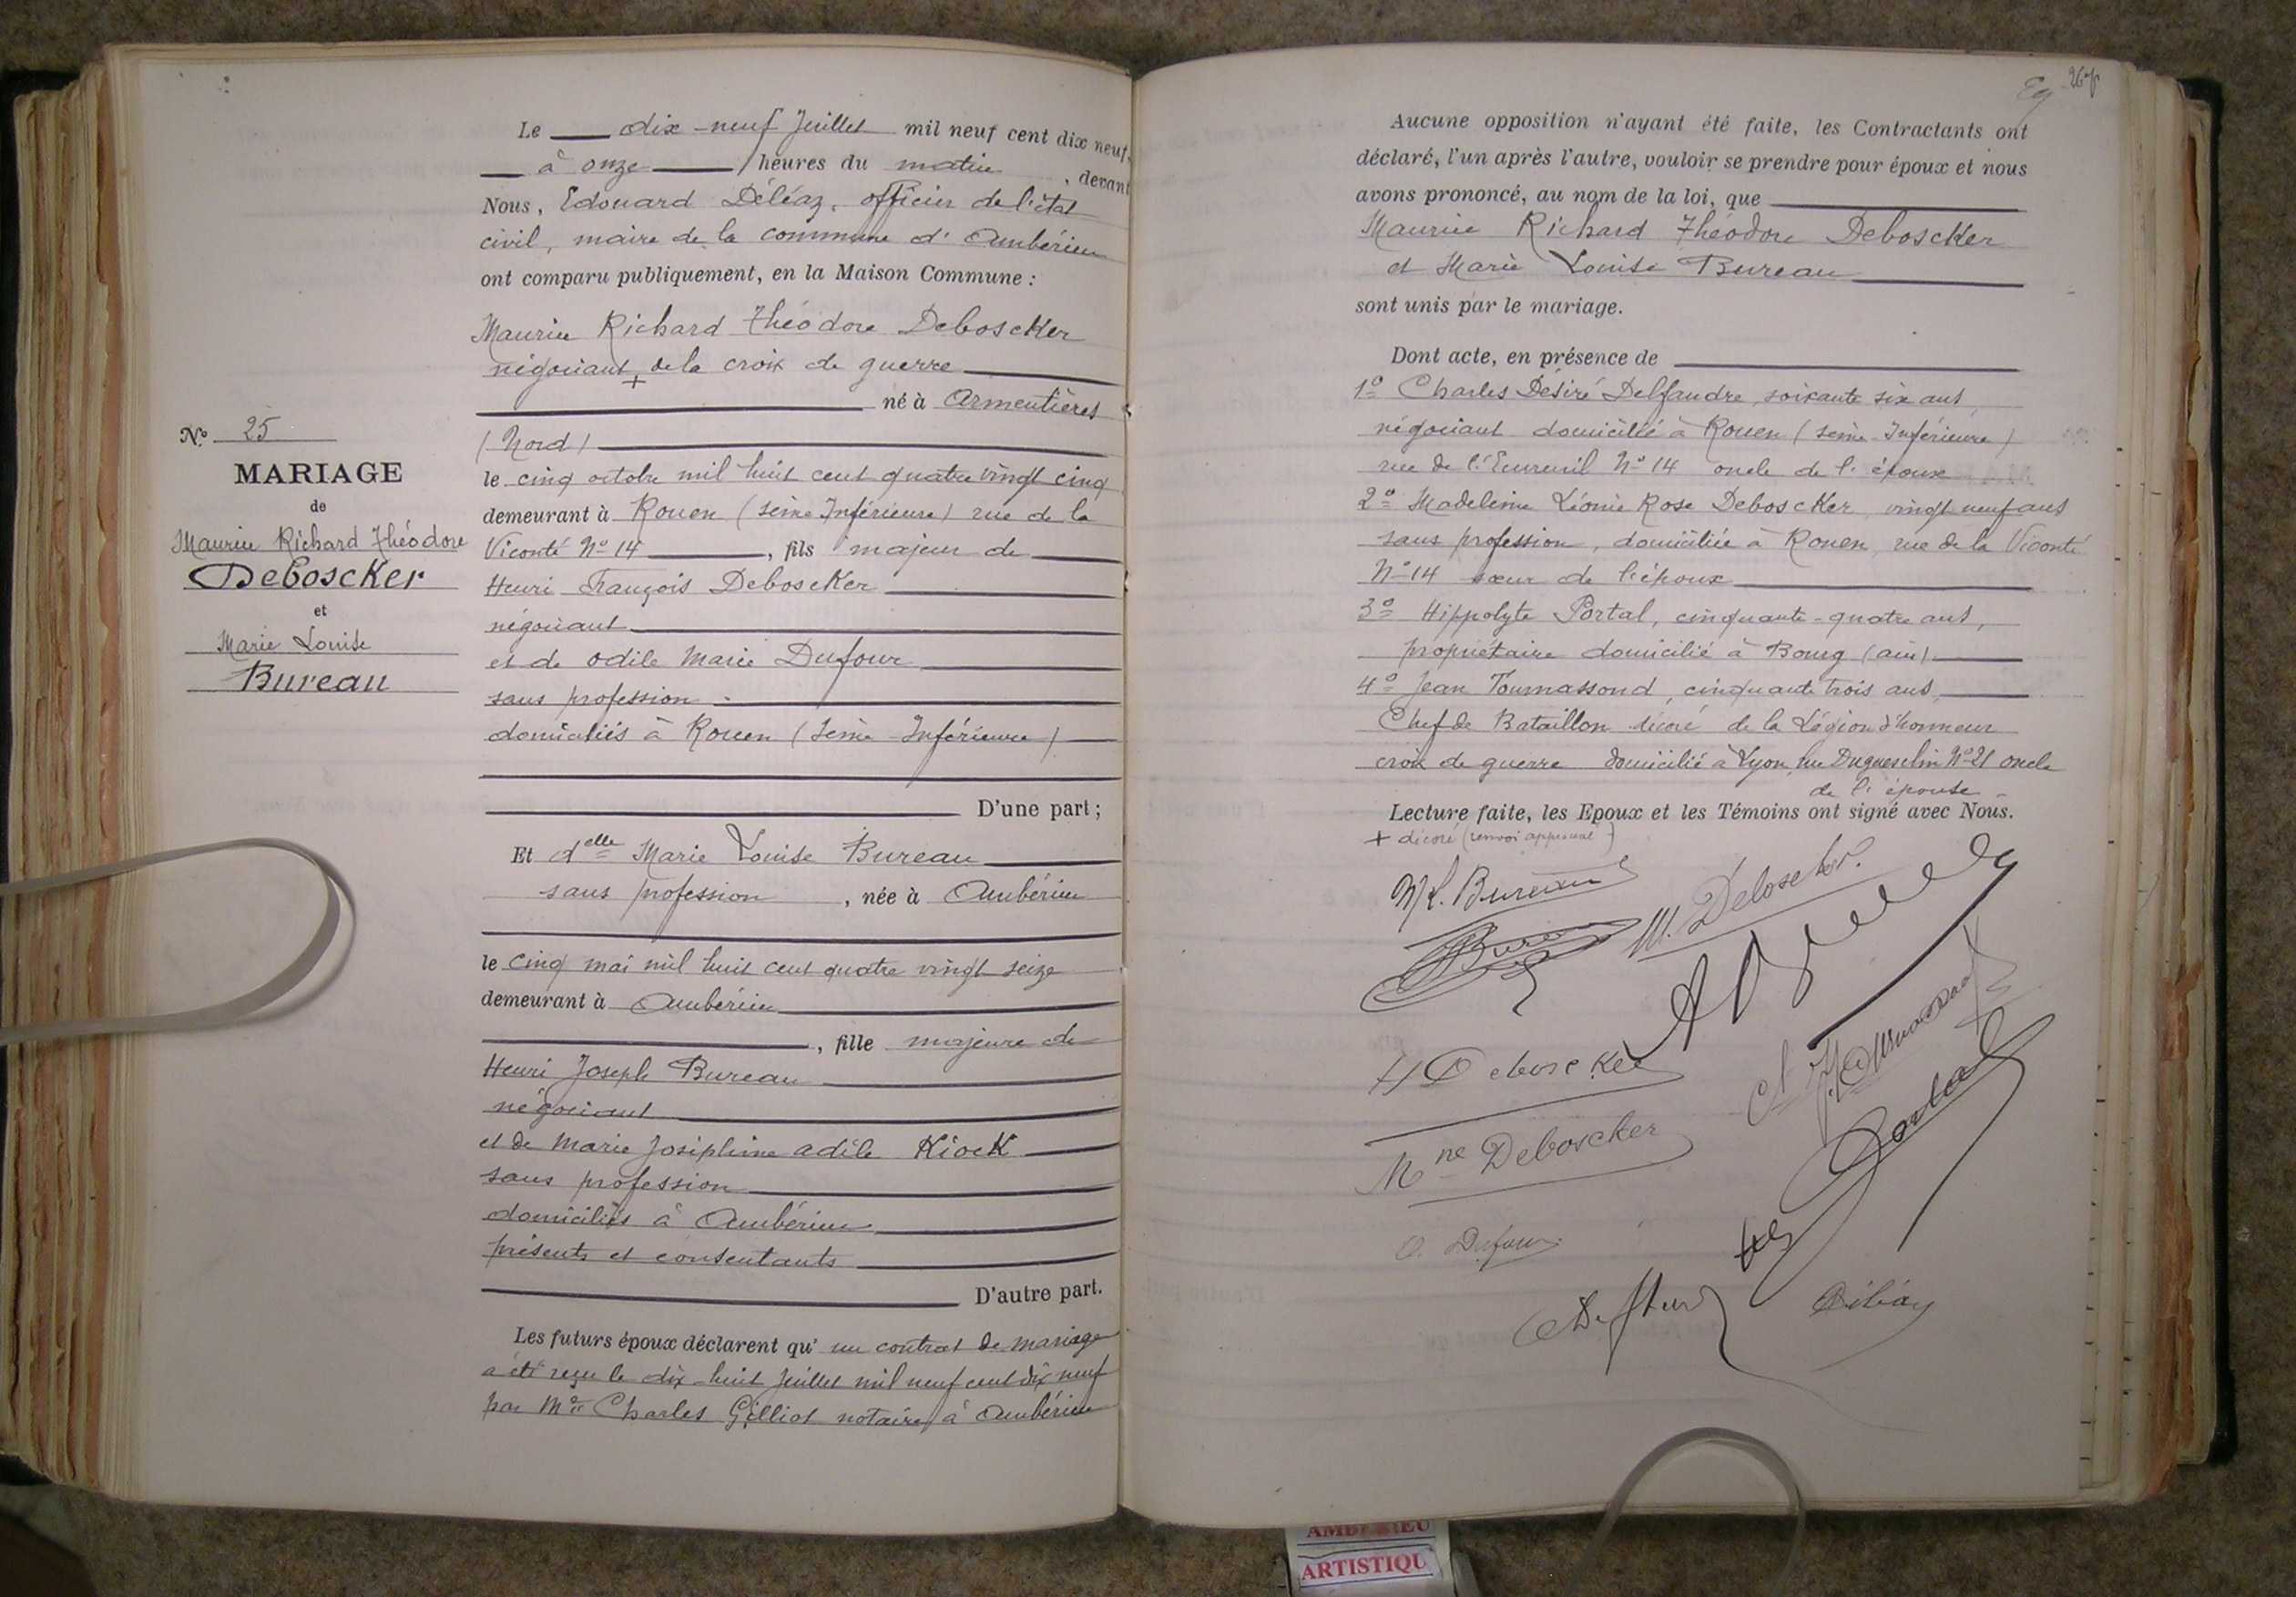 Le dix-neuf Juillet mil neuf cent dix neuf,
à onze heures du matin, devant
Nous, Edouard Déléaz, officier de l'état
civil, maire de la commune d'Ambérieu
ont comparu publiquement, en la Maison Commune :
Maurice Richard Théodore Deboscker
négociant + de la croix de guerre
né à Armentières
(Nord)
le cinq octobre mil huit cent quatre vingt cinq
demeurant à Rouen (Seine Inférieure) rue de la
Viconté No 14, fils majeur de
Henri François Deboscker
négociant
et de Odile Marie Dufour
sans profession
domiciliés à Rouen (Seine-Inférieure)
D'une part ;
No 25
MARIAGE
de
Maurice Richard Théodore
Deboscker
et
Marie Louise
Bureau
Et delle Marie Louise Bureau
sans profession, née à Ambérieu
le cinq mai mil huit cent quatre vingt seize
demeurant à Ambérieu
, fille majeure de
Henri Joseph Bureau
négociant
et de Marie Joséphine Adèle Kiock
sans profession
domiciliés à Ambérieu
présents et consentants
D'autre part.
Les futurs époux déclarent qu'un contrat de mariage
a été reçu le dix-huit Juillet mil neuf cent dix neuf
par Me Charles Gilliot notaire à Ambérieu
Aucune opposition n'ayant été faite, les Contractants ont
déclaré, l'un après l'autre, vouloir se prendre pour époux et nous
avons prononcé, au nom de la loi, que
Maurice Richard Théodore Deboscker
et Marie Louise Bureau
sont unis par le mariage.
Dont acte, en présence de
1o Charles Désiré soixante six ans,
négociant domicilié à Rouen (Seine-Inférieure)
rue de No 14 oncle de l'époux
2o Madeleine Léonie Rose Deboscker vingt neuf ans
sans profession, domiciliée à Rouen, rue de la Viconté
No 14 sœur de l'époux
3o Hippolyte Portal, cinquante-quatre ans,
propriétaire domicilié à Bourg (ain)
4o Jean Tournassoud, cinquante trois ans,
Chef de Bataillon décoré de la Légion d'honneur
croix de guerre domicilié à Lyon, rue Duguesclin No 21 oncle
de l'épouse
Lecture faite, les Epoux et les Témoins ont signé avec Nous.
+ décoré (renvoi approuvé)
M.L. Bureau
M. Deboscker
Bureau
H Deboscker
Tournassoud
Mne Deboscker
Portal
O. Dufour
Déléaz
AMBERIEU
ARTISTIQU